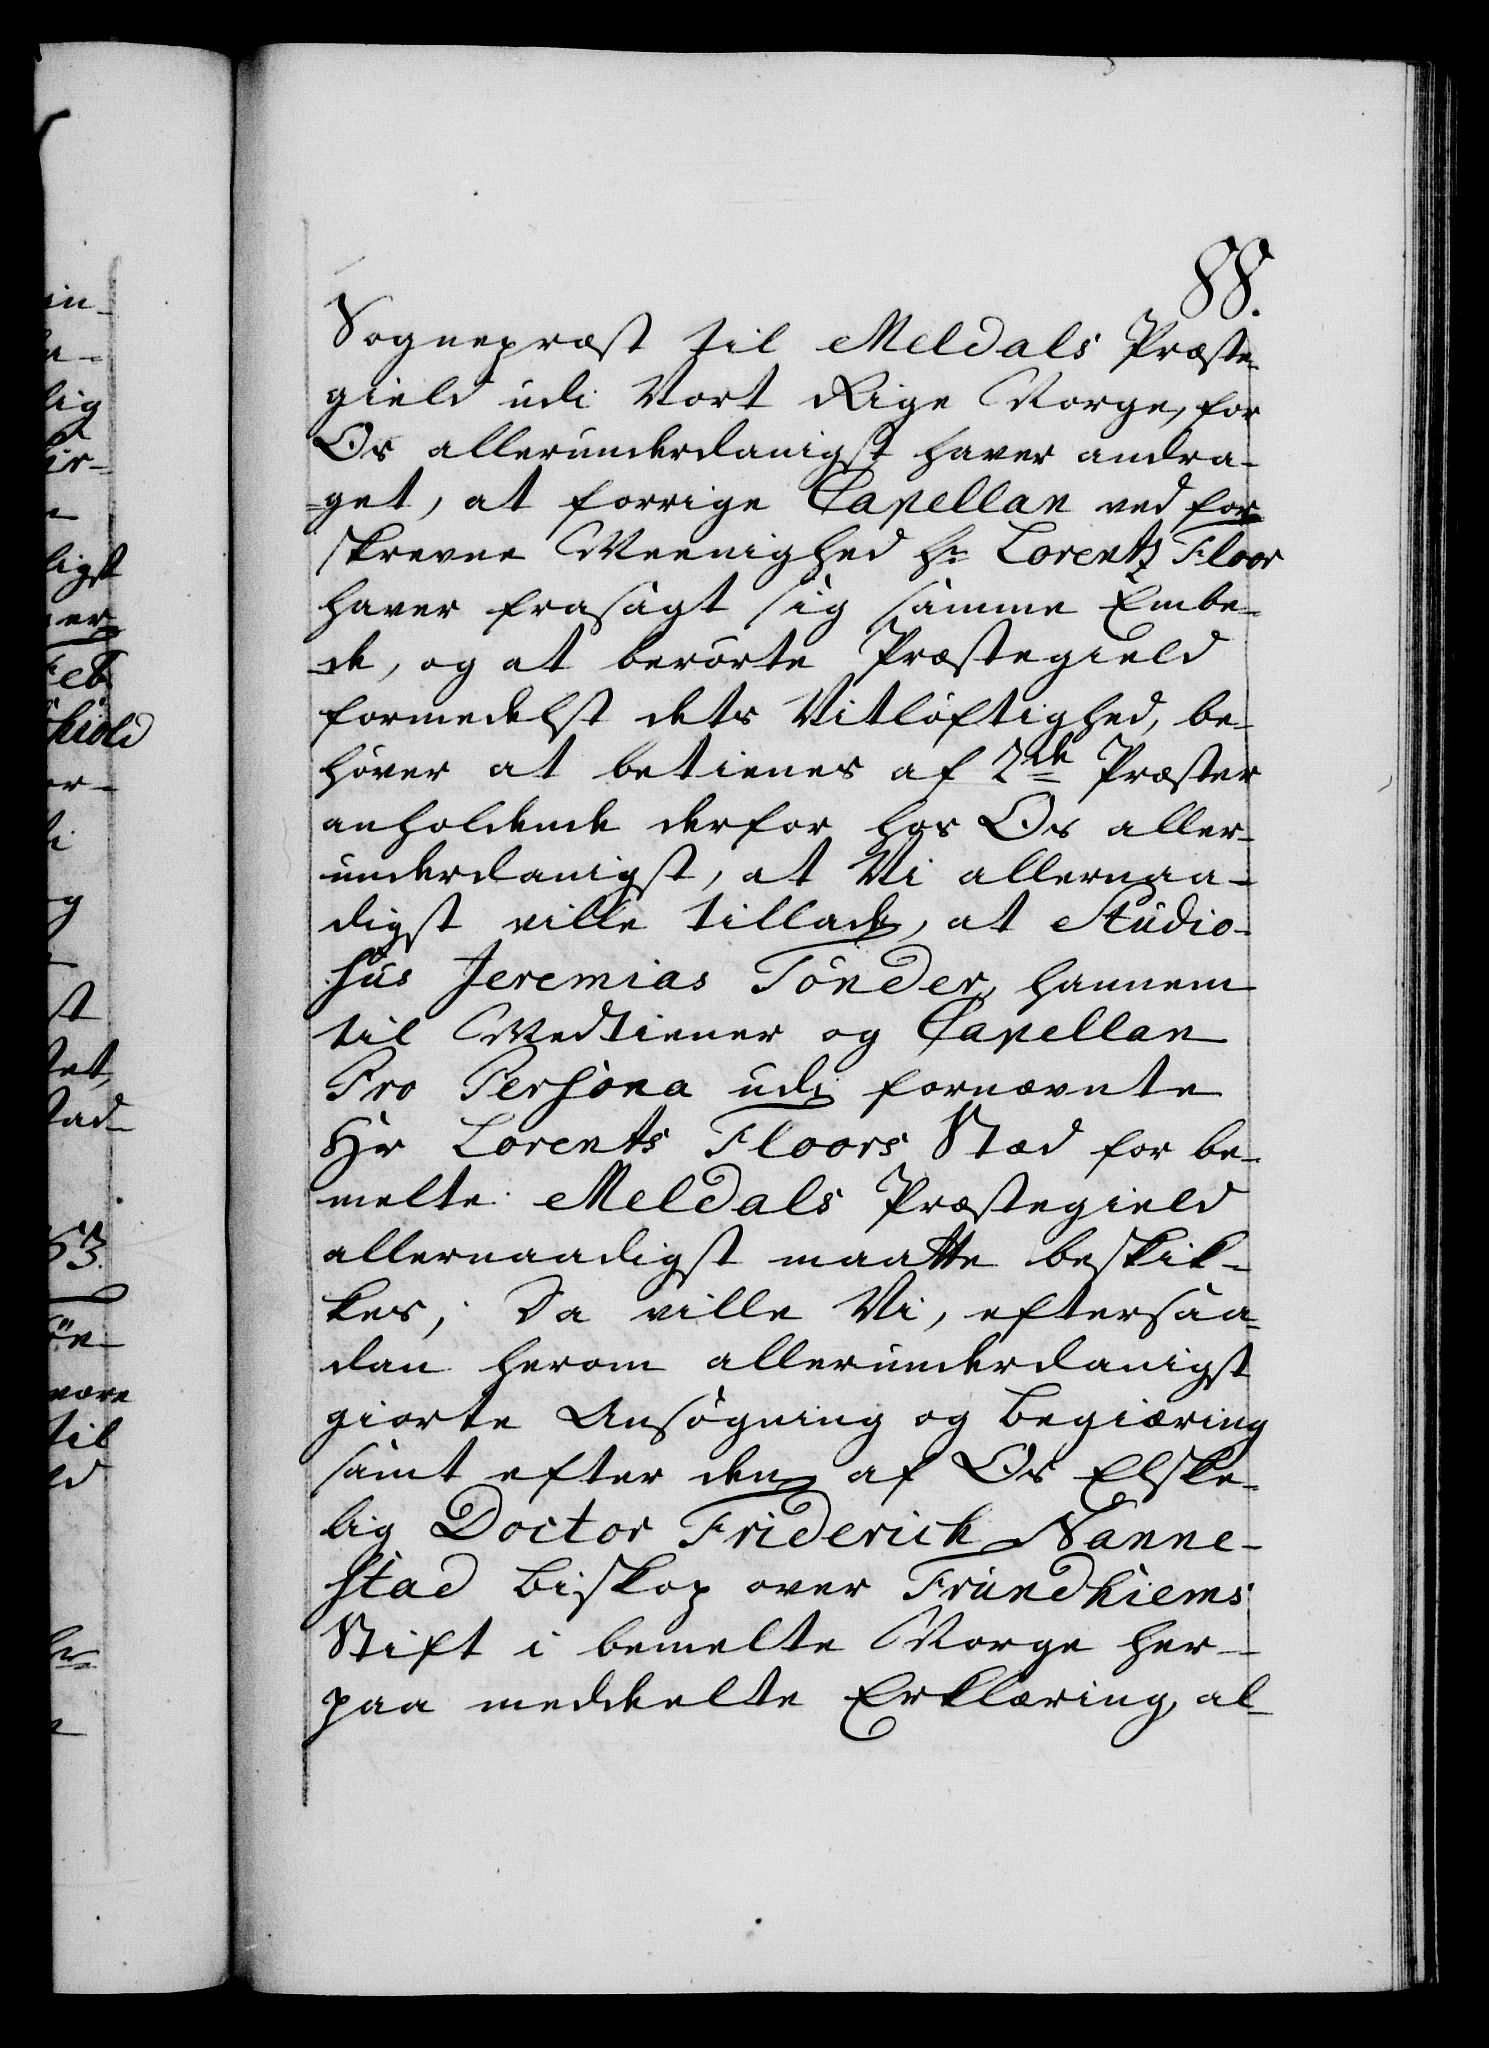 88.
Sognepræst til Meldals Præste-
gield udi Vort Rige Norge, for
Os allerunderdanigst haver andra-
-get, at forrige Capellan ved for
skrevne Meenighed Hr. Lorentz Floor
haver frasagt sig samme Embe-
de, og at berørte Præstegield
formedelst dets Vitløftighed, be-
høver at betienes af 2de Præster
anholdende derfor hos Os aller-
underdanigst, at Vi allernaa-
digst ville tillade, at Studio-
sus Jeremias Tönder, hannem
til Medtiener og Capellan
Pro Persona udi fornævnte
Hr Lorents Floors Stæd for be-
melte Meldals Præstegield
allernaadigst maatte beskik-
kes; Da ville Vi, eftersaa-
dan herom allerunderdanigst
giorte Ansøgning og Begiæring
samt efter den af Os Elske-
lig Doctor Friderich Nanne-
stad Biskop over Trundhiems
Stift i bemelte Norge her-
paa meddeelte Erklæring, al-